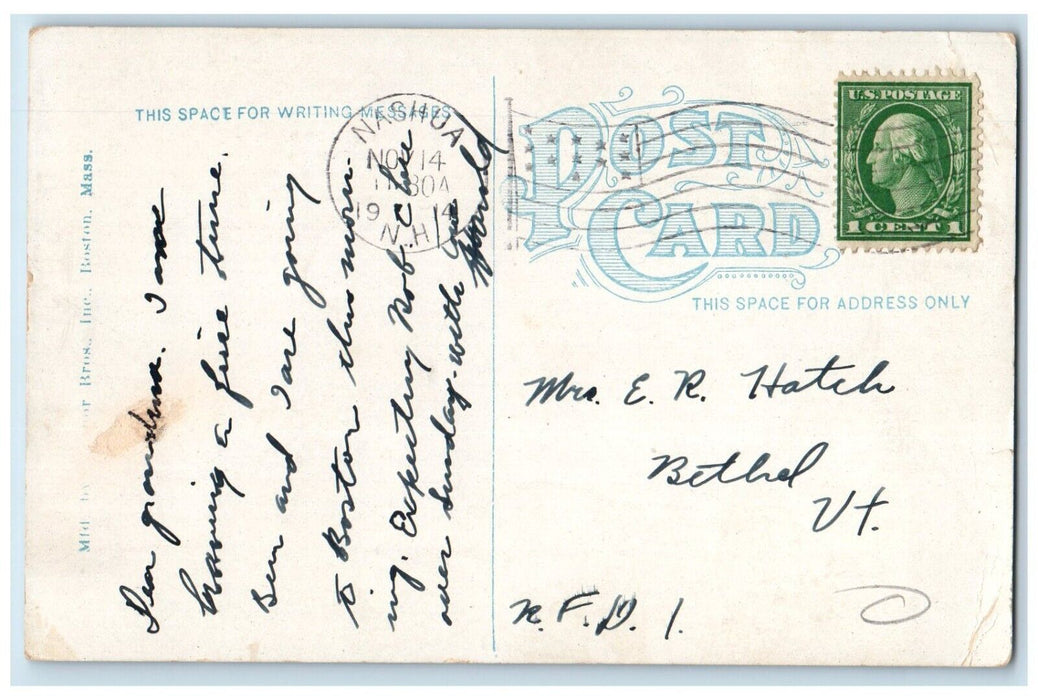 THIS SPACE FOR WRITING MESSAGES
Dear grandma. I am
having a fine time.
Ben and I are going
to Boston this morn-
ing. Expecting Rob. C here
over Sunday. with
Harold
Mfd. by Bros., Inc., Boston, Mass.
NASHUA
NOV 14
11 30A
1914
N.H.
POST CARD
U.S. POSTAGE
1 CENT 1
THIS SPACE FOR ADDRESS ONLY
Mrs. E. R. Hatch
Bethel
Vt.
R. F. D. 1.